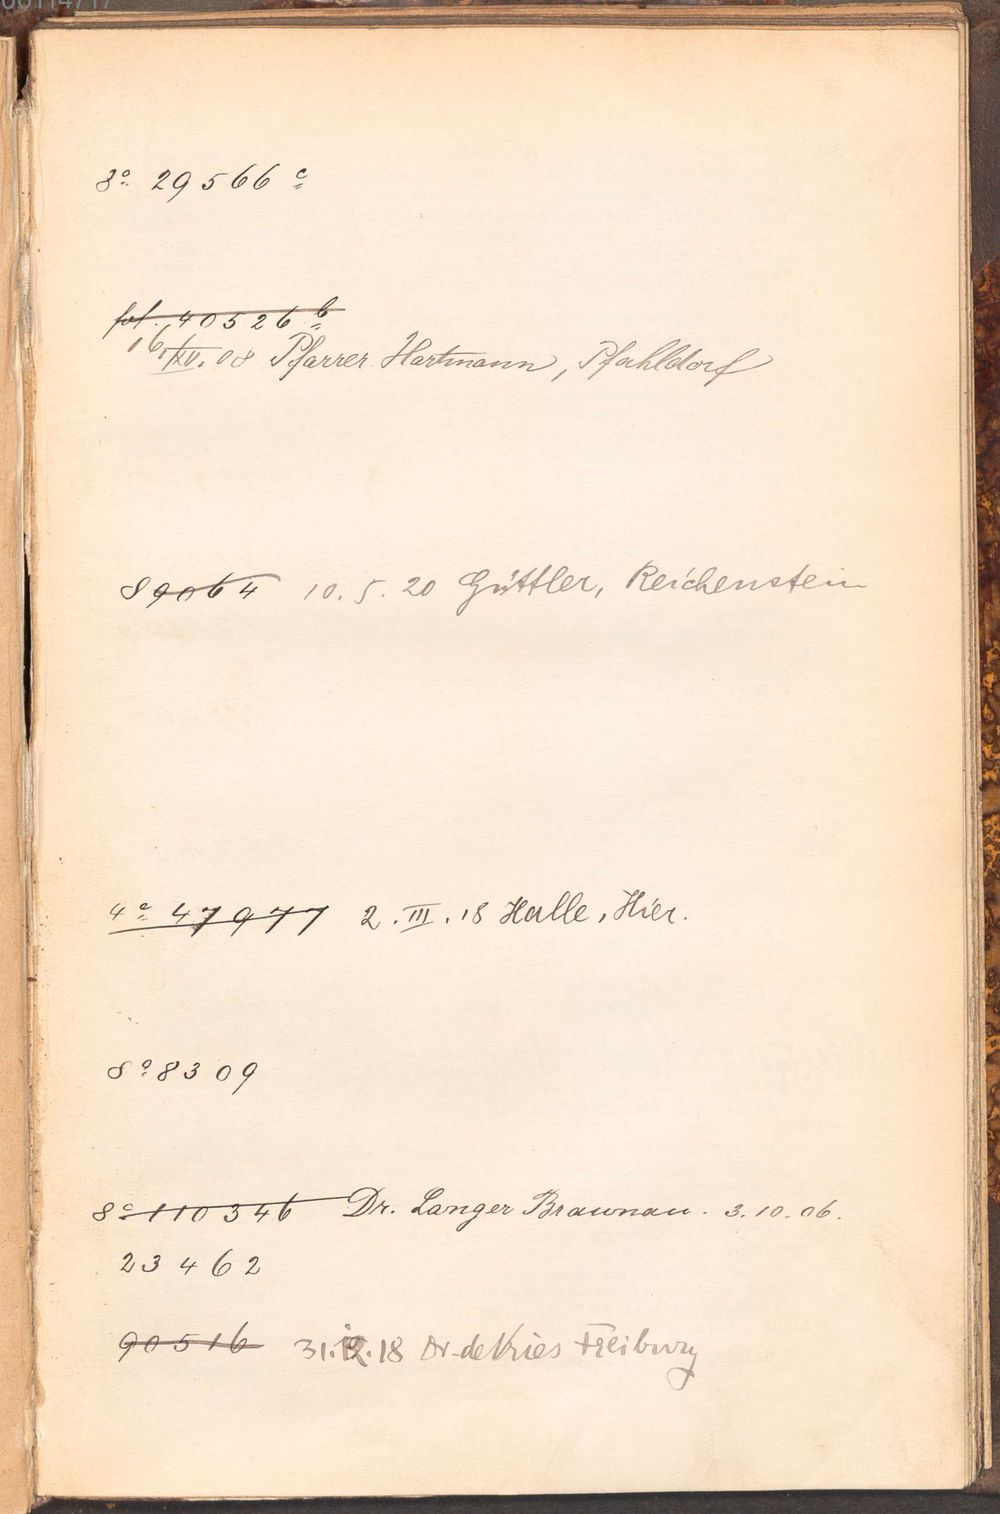 8º 29566 c
fol. 40526 b
16/XII. 08 Pfarrer Hartmann, Pfahldorf
89064 10. 5. 20 Güttler, Reichenstein
4º 47977 2. III. 18 Halle, Hier.
8º 8309
8º 110346 Dr. Langer Braunau. 3. 10. 06.
23462
90516 31.12.18 Dr. de Vries Freiburg